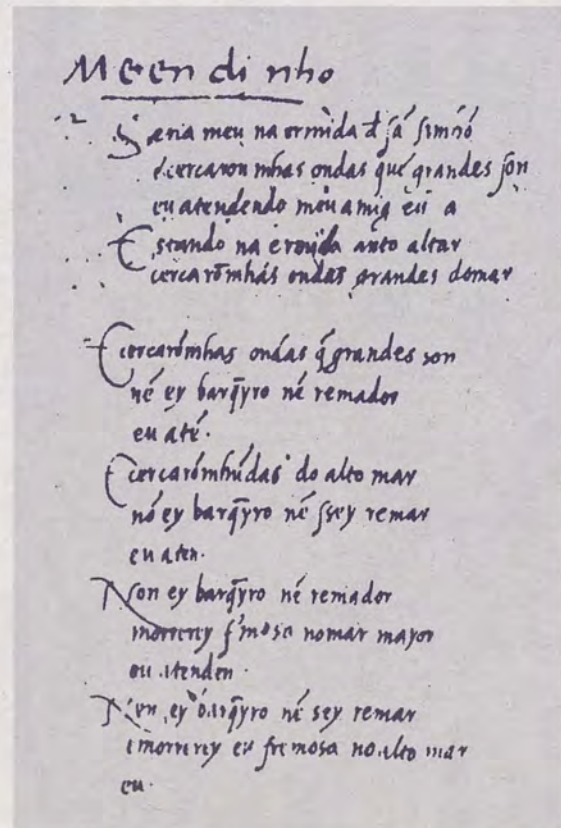 Meendinho
Sseria meu na ermida d̄ sā simhō
E cercaron mhas ondas que grandes son
eu atendendo meu amig eu a
Estando na ermida anto altar
cercarōmhas ondas grandes do mar
E cercarōmhas ondas q̄ grandes son
nē ey barq̄yro nē remador
eu atē.
E cercarōmhūdas do alto mar
nō ey barq̄yro nē ssey remar
eu aten.
Non ey barq̄yro nē remador
morrerey fremosa no mar mayor
eu atenden.
Nen ey barq̄yro nē sey remar
e morrerey eu fremosa no alto mar
eu.